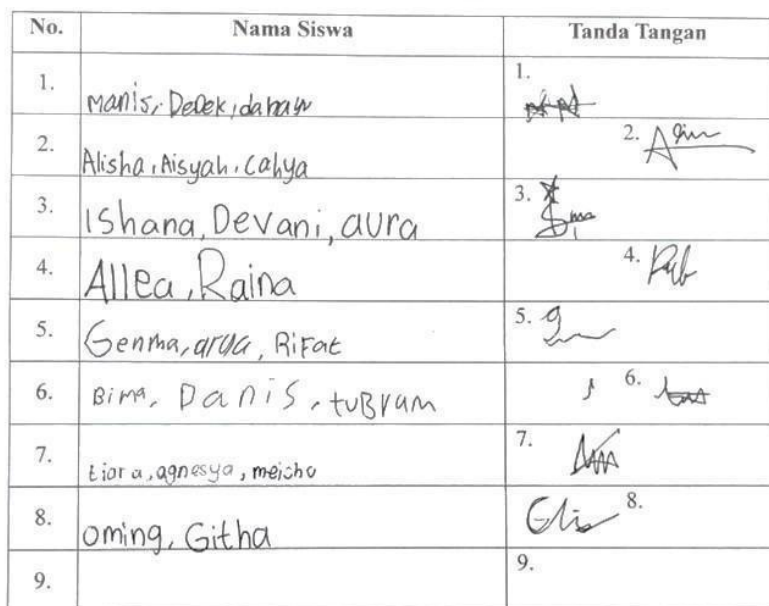 No. Nama Siswa Tanda Tangan
1. Manis, Dedek, danayu 1.
2. Alisha, Aisyah, Cahya 2.
3. Ishana, Devani, aura 3.
4. Allea, Raina 4.
5. Genma, arya, Rifat 5.
6. Bima, Danis, tuBrum 6.
7. tiara, agnesya, meicha 7.
8. oming, Githa 8.
9. 9.